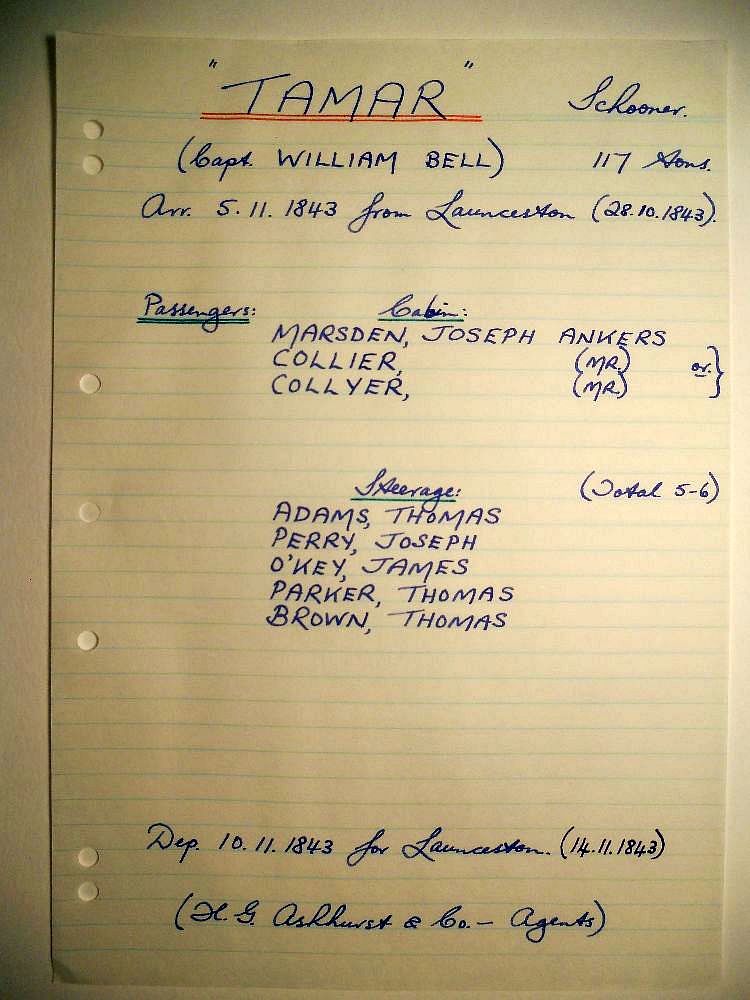 "TAMAR" Schooner.
(Capt. WILLIAM BELL) 117 tons.
Arr. 5.11.1843 from Launceston (28.10.1843).
Passengers: Cabin:
MARSDEN, JOSEPH ANKERS
COLLIER, (MR.) or }
COLLYER, (MR.)
Steerage: (Total 5-6)
ADAMS, THOMAS
PERRY, JOSEPH
O'KEY, JAMES
PARKER, THOMAS
BROWN, THOMAS
Dep. 10.11.1843 for Launceston. (14.11.1843)
(H. G. Ashhurst & Co. - Agents)